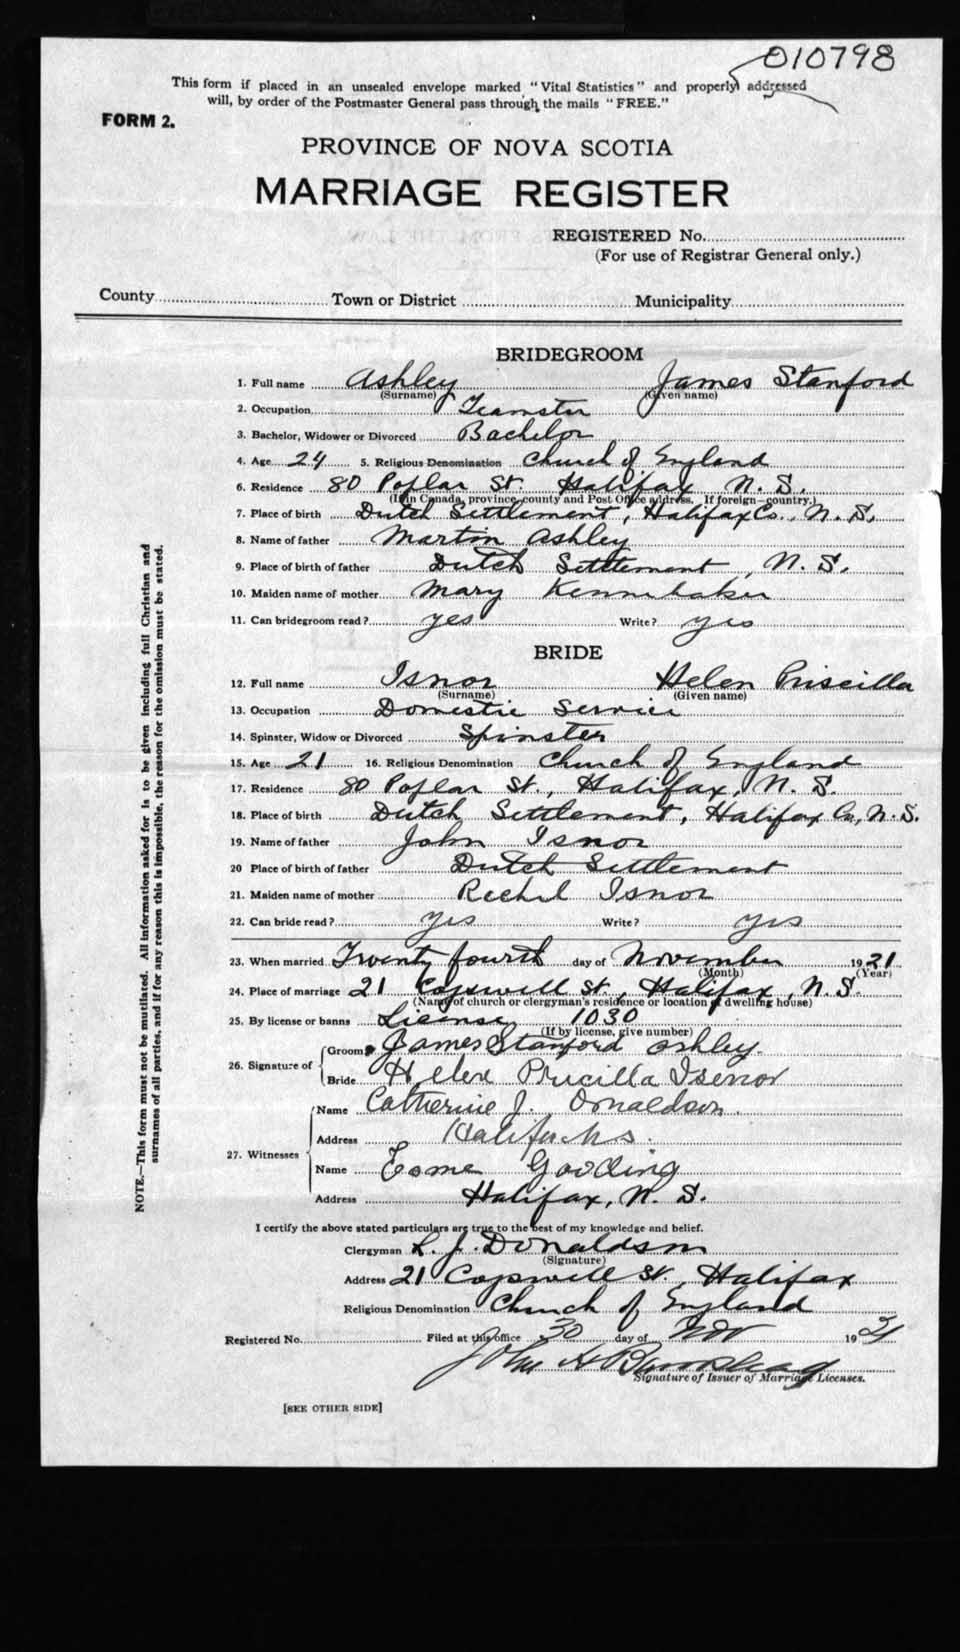 010798
This form if placed in an unsealed envelope marked "Vital Statistics" and properly addressed
will, by order of the Postmaster General pass through the mails "FREE."
FORM 2.
PROVINCE OF NOVA SCOTIA
MARRIAGE REGISTER
REGISTERED No.
(For use of Registrar General only.)
County Town or District Municipality
BRIDEGROOM
1. Full name Ashley James Stanford
(Surname) (Given name)
2. Occupation Teamster
3. Bachelor, Widower or Divorced Bachelor
4. Age 24 5. Religious Denomination Church of England
6. Residence 80 Poplar St. Halifax N. S.
(If in Canada, province, county and Post Office address. If foreign—country.)
7. Place of birth Dutch Settlement, Halifax Co., N. S.
8. Name of father Martin Ashley
9. Place of birth of father Dutch Settlement, N. S.
10. Maiden name of mother Mary Kennebaker
11. Can bridegroom read? yes Write? yes
BRIDE
12. Full name Isnor Helen Priscilla
(Surname) (Given name)
13. Occupation Domestic Service
14. Spinster, Widow or Divorced Spinster
15. Age 21 16. Religious Denomination Church of England
17. Residence 80 Poplar St., Halifax, N. S.
18. Place of birth Dutch Settlement, Halifax Co, N. S.
19. Name of father John Isnor
20 Place of birth of father Dutch Settlement
21. Maiden name of mother Rechel Isnor
22. Can bride read? yes Write? yes
23. When married Twenty fourth day of November 1921
(Month) (Year)
24. Place of marriage 21 Copswell St., Halifax, N. S.
(Name of church or clergyman's residence or location of dwelling house)
25. By license or banns License 1030
(If by license, give number)
26. Signature of Groom James Stanford Ashley.
Bride Helen Pricilla Isenor
27. Witnesses
Name Catherine J. Donaldson.
Address Halifax N.S.
Name Esme Gooding
Address Halifax, N. S.
I certify the above stated particulars are true to the best of my knowledge and belief.
Clergyman L. J. Donaldson
(Signature)
Address 21 Copswell St. Halifax
Religious Denomination Church of England
Registered No. Filed at this office 30 day of Nov 1921
John H
Signature of Issuer of Marriage Licenses.
[SEE OTHER SIDE]
NOTE.—This form must not be mutilated. All information asked for is to be given including full Christian and
surnames of all parties, and if for any reason this is impossible, the reason for the omission must be stated.